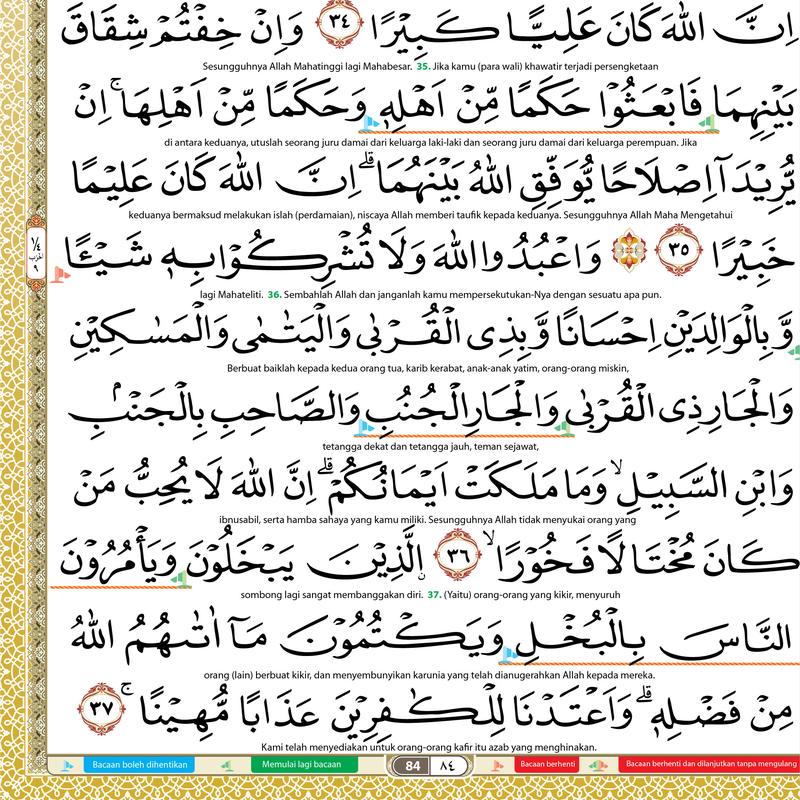 اِنَّ اللّٰهَ كَانَ عَلِيًّا كَبِيْرًا ٣٤ وَاِنْ خِفْتُمْ شِقَاقَ
Sesungguhnya Allah Mahatinggi lagi Mahabesar. 35. Jika kamu (para wali) khawatir terjadi persengketaan
بَيْنِهِمَا فَابْعَثُوْا حَكَمًا مِّنْ اَهْلِهٖ وَحَكَمًا مِّنْ اَهْلِهَا ۚ اِنْ
di antara keduanya, utuslah seorang juru damai dari keluarga laki-laki dan seorang juru damai dari keluarga perempuan. Jika
يُّرِيْدَآ اِصْلَاحًا يُّوَفِّقِ اللّٰهُ بَيْنَهُمَا ۗ اِنَّ اللّٰهَ كَانَ عَلِيْمًا
keduanya bermaksud melakukan islah (perdamaian), niscaya Allah memberi taufik kepada keduanya. Sesungguhnya Allah Maha Mengetahui
خَبِيْرًا ٣٥ وَاعْبُدُوا اللّٰهَ وَلَا تُشْرِكُوْا بِهٖ شَيْـًٔا
١/٤ الحزب ٩
lagi Mahateliti. 36. Sembahlah Allah dan janganlah kamu mempersekutukan-Nya dengan sesuatu apa pun.
وَّبِالْوَالِدَيْنِ اِحْسَانًا وَّبِذِى الْقُرْبٰى وَالْيَتٰمٰى وَالْمَسٰكِيْنِ
Berbuat baiklah kepada kedua orang tua, karib kerabat, anak-anak yatim, orang-orang miskin,
وَالْجَارِ ذِى الْقُرْبٰى وَالْجَارِ الْجُنُبِ وَالصَّاحِبِ بِالْجَنْۢبِ
tetangga dekat dan tetangga jauh, teman sejawat,
وَابْنِ السَّبِيْلِ ۙ وَمَا مَلَكَتْ اَيْمَانُكُمْ ۗ اِنَّ اللّٰهَ لَا يُحِبُّ مَنْ
ibnusabil, serta hamba sahaya yang kamu miliki. Sesungguhnya Allah tidak menyukai orang yang
كَانَ مُخْتَالًا فَخُوْرًا ۙ ٣٦ ۨالَّذِيْنَ يَبْخَلُوْنَ وَيَأْمُرُوْنَ
sombong lagi sangat membanggakan diri. 37. (Yaitu) orang-orang yang kikir, menyuruh
النَّاسَ بِالْبُخْلِ وَيَكْتُمُوْنَ مَآ اٰتٰىهُمُ اللّٰهُ
orang (lain) berbuat kikir, dan menyembunyikan karunia yang telah dianugerahkan Allah kepada mereka.
مِنْ فَضْلِهٖ ۗ وَاَعْتَدْنَا لِلْكٰفِرِيْنَ عَذَابًا مُّهِيْنًا ۚ ٣٧
Kami telah menyediakan untuk orang-orang kafir itu azab yang menghinakan.
Bacaan boleh dihentikan Memulai lagi bacaan 84 ٨٤ Bacaan berhenti Bacaan berhenti dan dilanjutkan tanpa mengulang